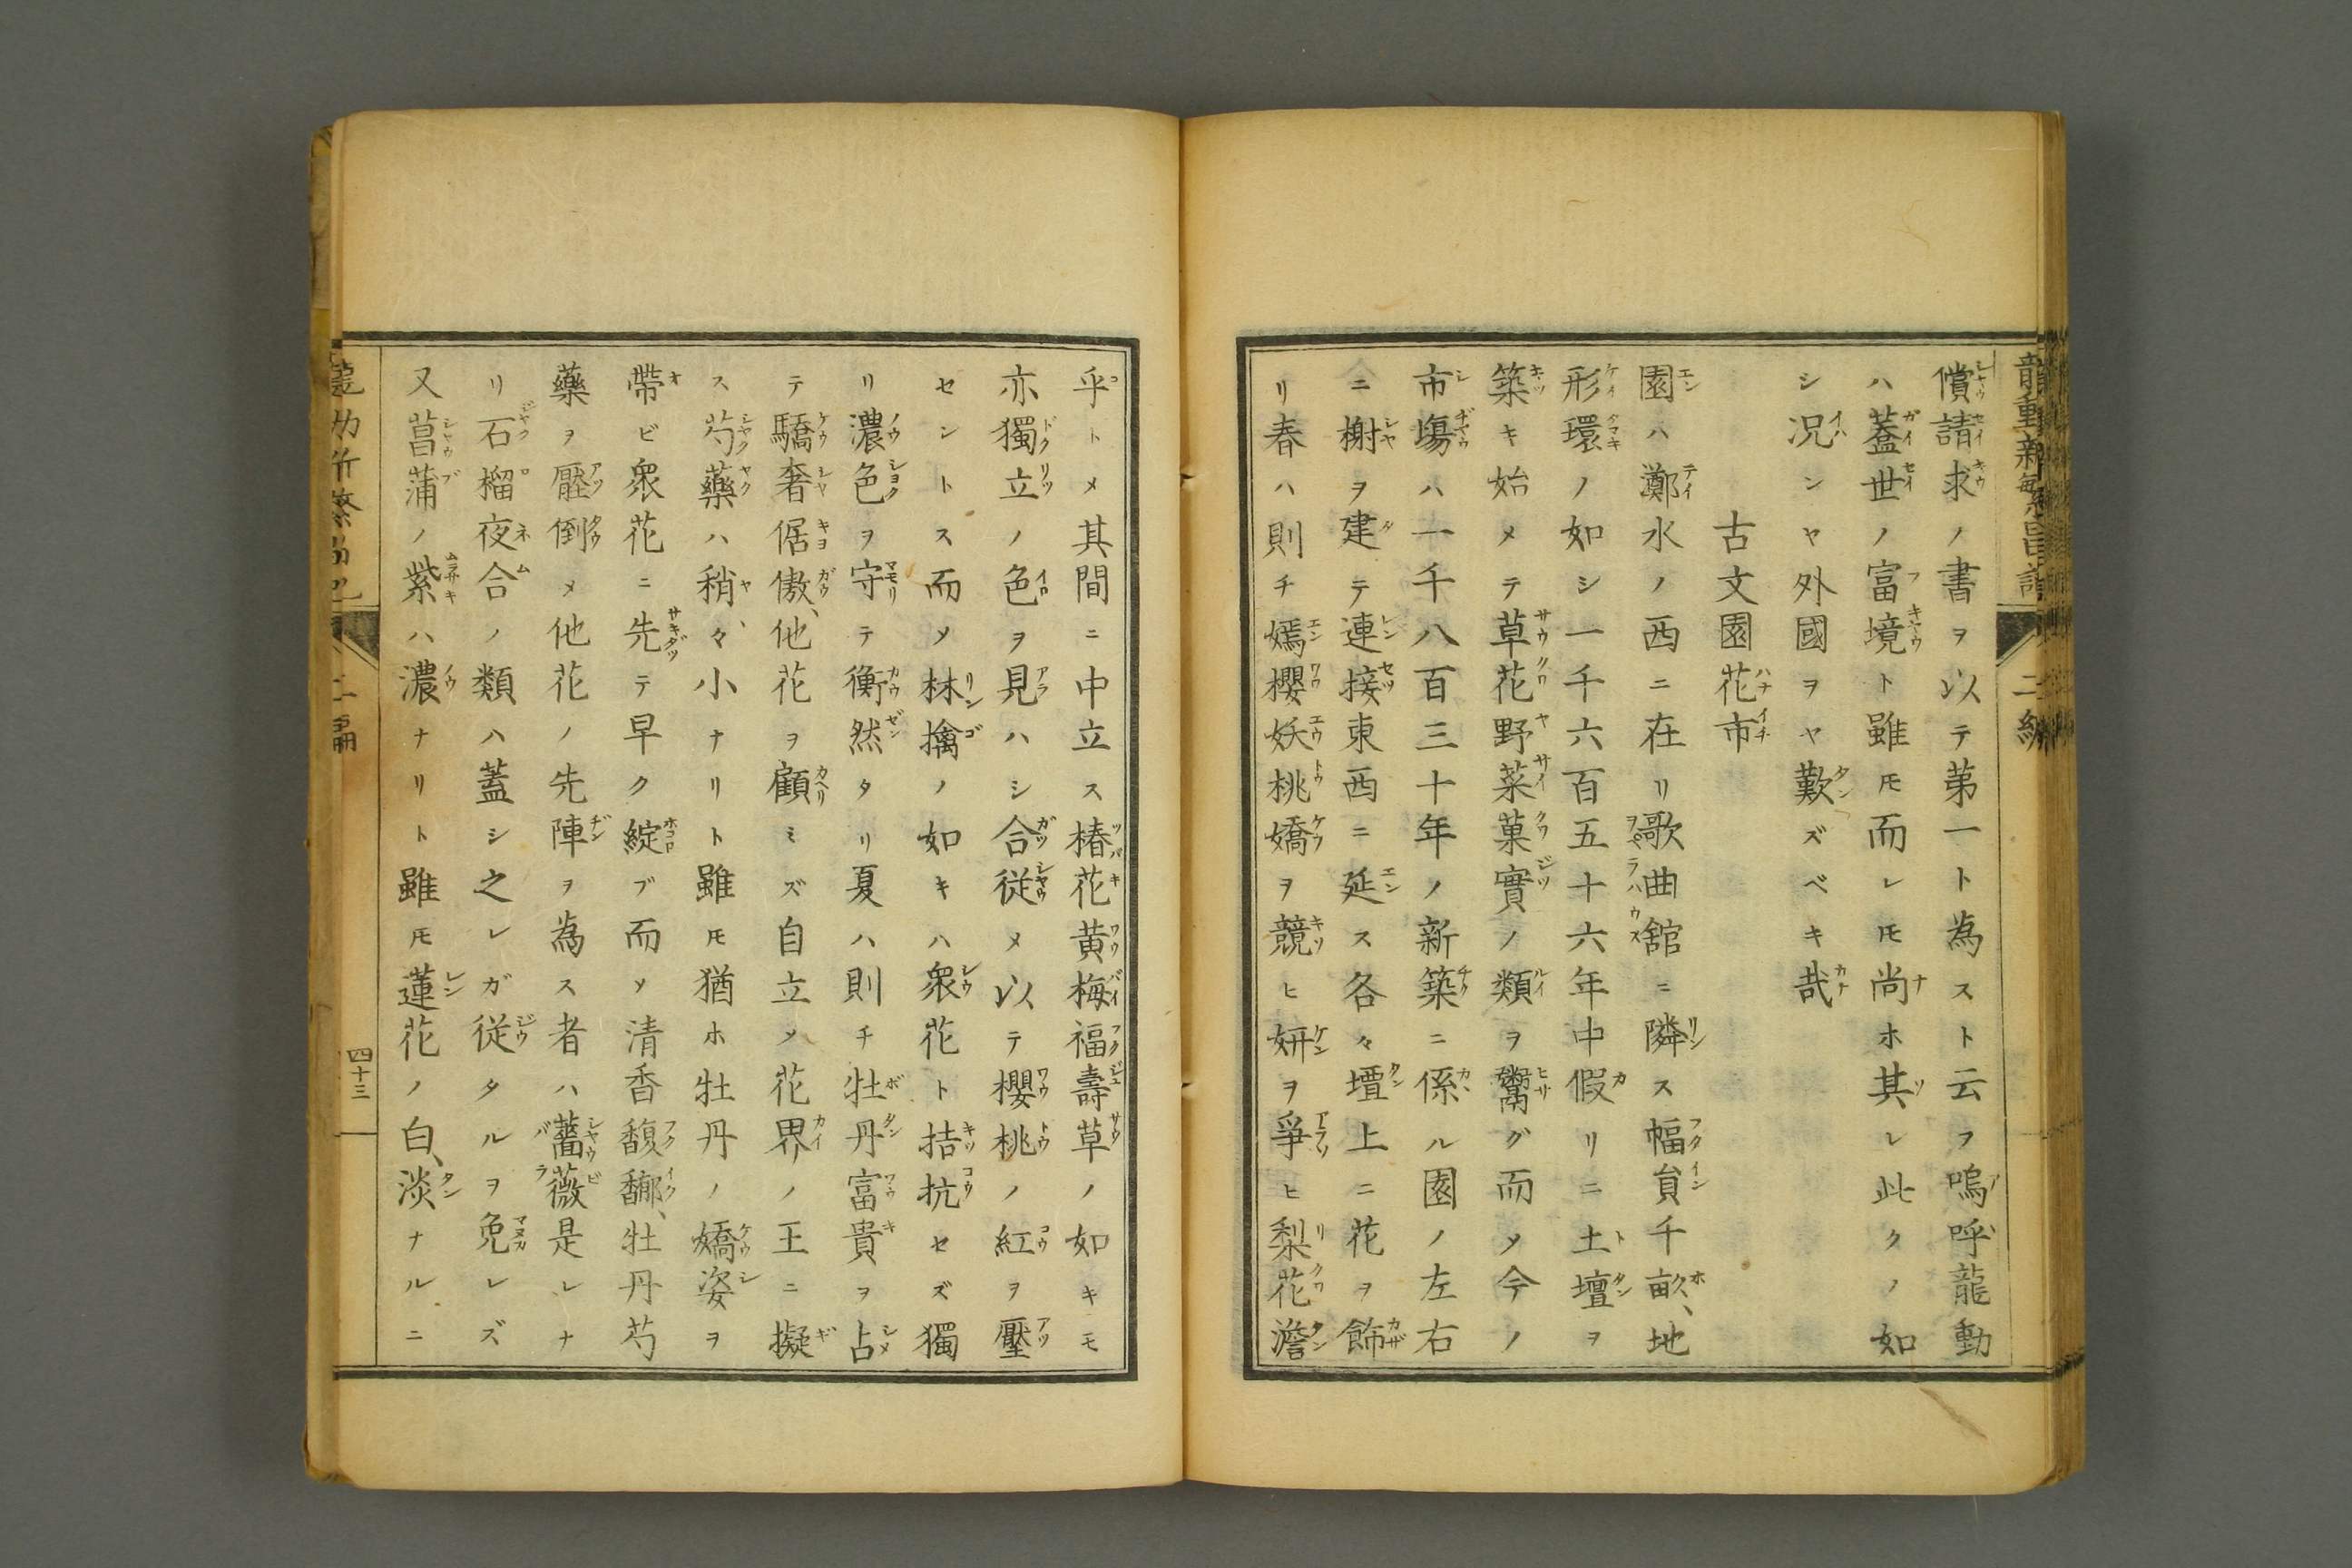 龍動新繁昌記 二編
償請求ノ書ヲ以テ第一ト為スト云フ嗚呼龍動
ハ蓋世ノ富境ト雖𪜈而レ𪜈尚ホ其レ此クノ如
シ况ンヤ外國ヲヤ歎ズベキ哉
古文園花市
園ハ鄭水ノ西ニ在リ歌曲舘ニ隣ス幅貟千畝、地
形環ノ如シ一千六百五十六年中假リニ土壇ヲ
築キ始メテ草花野菜菓實ノ類ヲ鬻グ而メ今ノ
市塲ハ一千八百三十年ノ新築ニ係ル園ノ左右
ニ榭ヲ建テ連接東西ニ延ス各々壇上ニ花ヲ飾
リ春ハ則チ嫣櫻妖桃嬌ヲ競ヒ妍ヲ爭ヒ梨花澹
乎トメ其間ニ中立ス椿花黄梅福壽草ノ如キモ
亦獨立ノ色ヲ見ハシ合従メ以テ櫻桃ノ紅ヲ壓
セントス而メ林擒ノ如キハ衆花ト拮抗セズ獨
リ濃色ヲ守テ衡然タリ夏ハ則チ牡丹富貴ヲ占
テ驕奢倨傲、他花ヲ顧ミズ自立メ花界ノ王ニ擬
ス芍藥ハ稍々小ナリト雖𪜈猶ホ牡丹ノ嬌姿ヲ
帶ビ衆花ニ先テ早ク綻ブ而メ清香馥郁、牡丹芍
藥ヲ壓倒メ他花ノ先陣ヲ為ス者ハ薔薇是レナ
リ石榴夜合ノ類ハ蓋シ之レガ従タルヲ免レズ
又菖蒲ノ紫ハ濃ナリト雖𪜈蓮花ノ白、淡ナルニ
二編
四十三